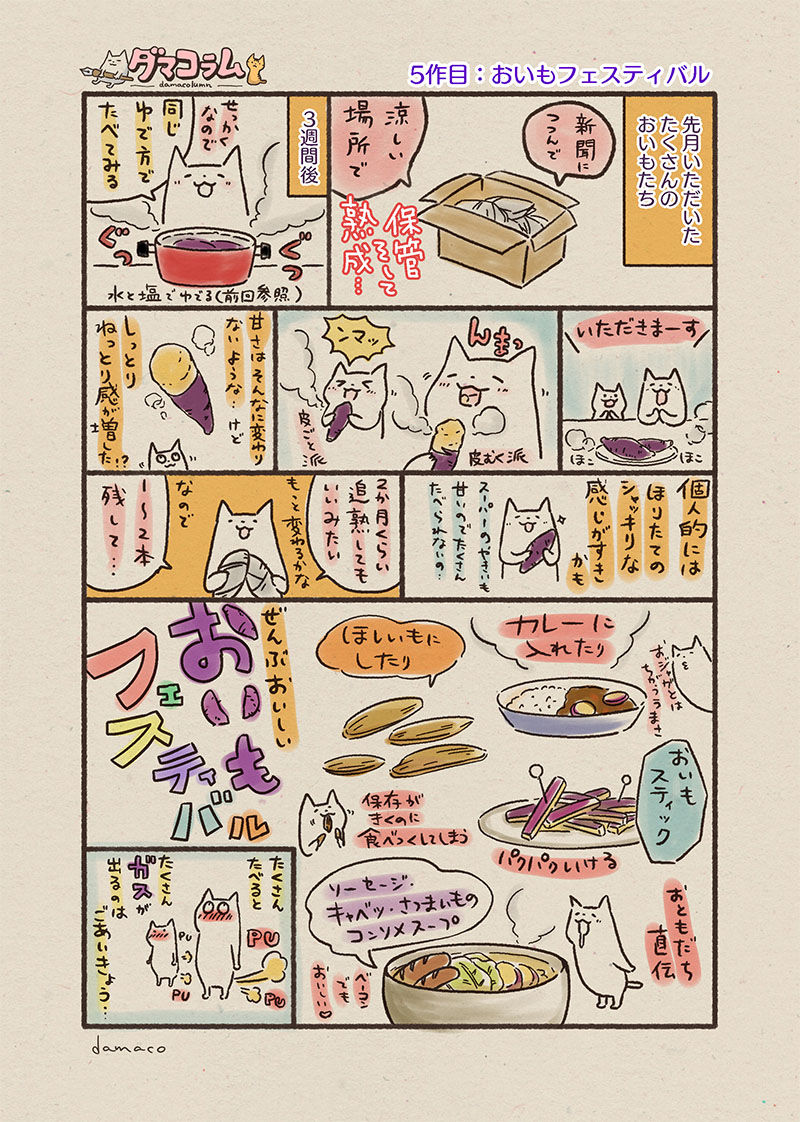 ダマコラム
damacolumn
5作目：おいもフェスティバル
先月いただいた
たくさんの
おいもたち
新聞に
つつんで
涼しい
場所で
保管
をして
熟成…
3週間後
せっかく
なので
同じ
ゆで方で
たべてみる
ぐっ
ぐっ
水と塩でゆでる(前回参照)
いただきまーす
ほこ
ほこ
んまっ
皮むく派
ンマッ
皮ごと派
甘さはそんなに変わり
ないような…けど
しっとり
ねっとり感が増した!?
個人的には
ほりたての
シャッキリな
感じがすき
かも
スーパーのやきいも
甘いのでたくさん
たべられないの…
2か月くらい
追熟しても
いいみたい
もっと変わるかな
なので
1〜2本
残して…
カレーに
入れたり
おジャガとは
ちがううまさ
ほしいもに
したり
保存が
きくのに
食べつくしてしまう
おいも
スティック
パクパクいける
おともだち
直伝
ソーセージ・
キャベツ・さつまいもの
コンソメスープ
ベーコン
でも
おいしい♡
ぜんぶおいしい
おいも
フェスティバル
たくさん
たべると
たくさん
ガスが
出るのは
ごあいきょう…
PU
PU
PU
PU
damaco